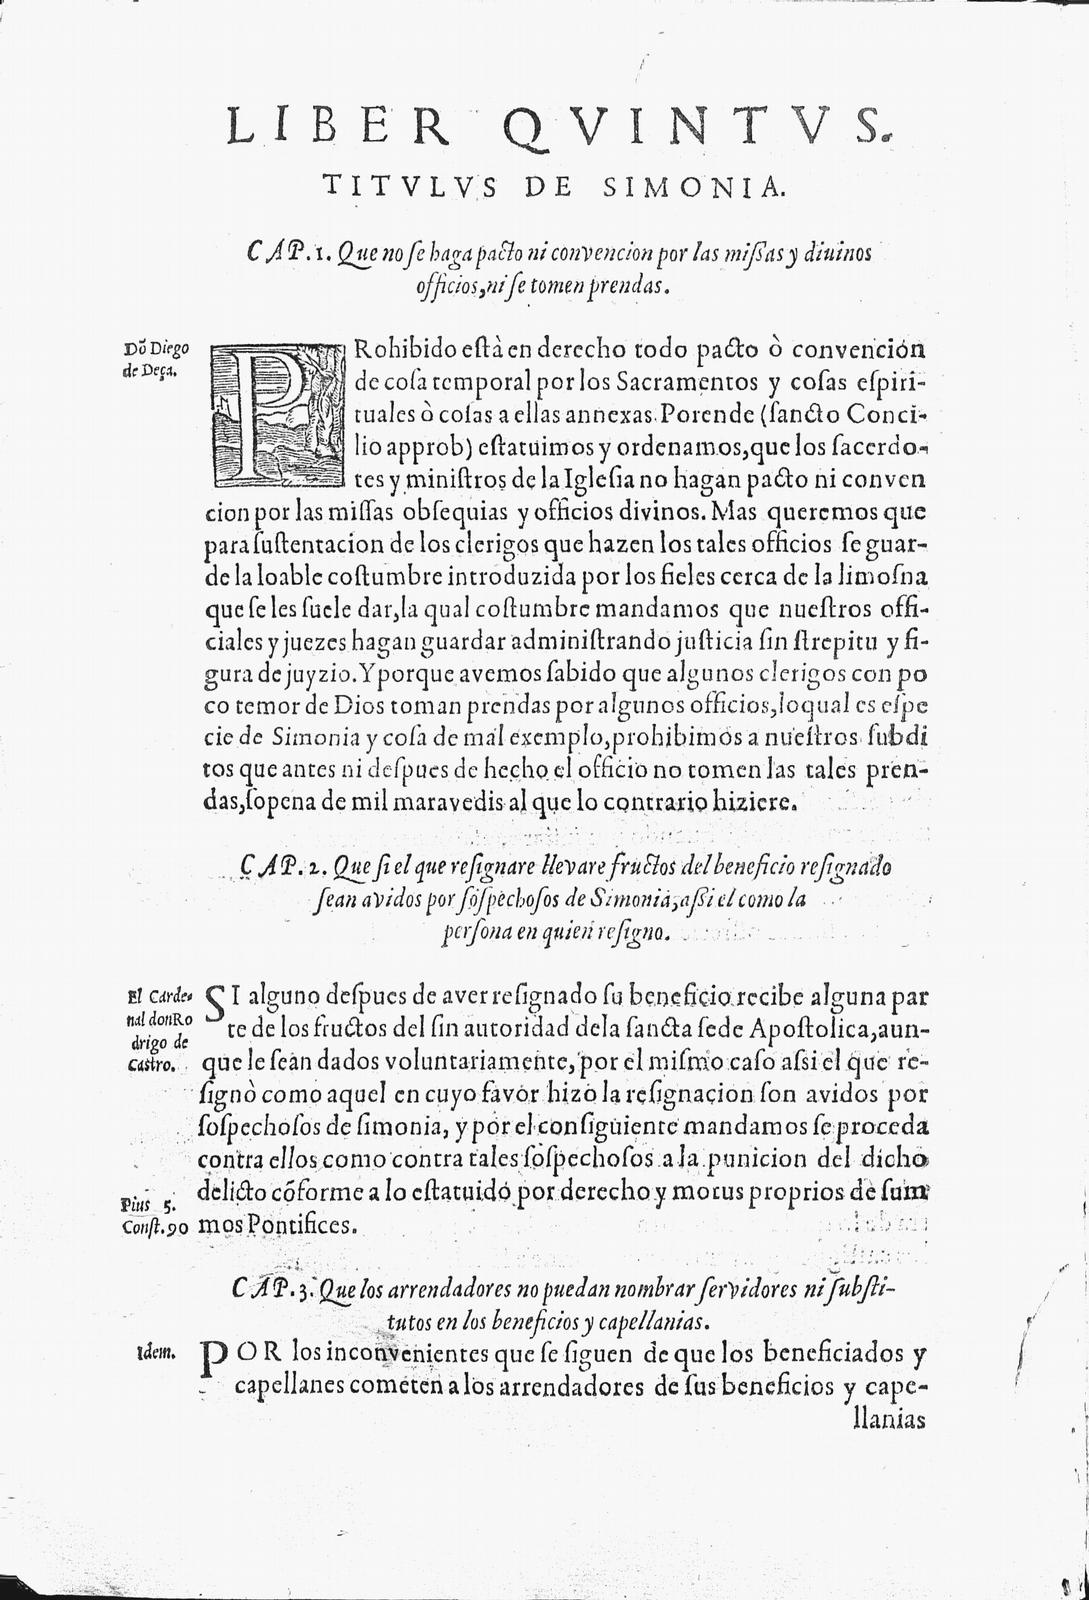 LIBER QVINTVS.
TITVLVS DE SIMONIA.
CAP. 1. Que no ſe haga pacto ni convencion por las miſſas y diuinos
officios, ni ſe tomen prendas.
Dõ Diego
de Deça.
PRohibido eſtà en derecho todo pacto ò convención
de coſa temporal por los Sacramentos y coſas eſpiri-
tuales ò coſas a ellas annexas. Porende (ſancto Conci-
lio approb) eſtatuimos y ordenamos, que los ſacerdo-
tes y miniſtros de la Igleſia no hagan pacto ni conven
cion por las miſſas obſequias y officios divinos. Mas queremos que
para ſuſtentacion de los clerigos que hazen los tales officios ſe guar-
de la loable coſtumbre introduzida por los fieles cerca de la limoſna
que ſe les ſuele dar, la qual coſtumbre mandamos que nueſtros offi-
ciales y juezes hagan guardar adminiſtrando juſticia ſin ſtrepitu y fi-
gura de juyzio. Y porque avemos ſabido que algunos clerigos con po
co temor de Dios toman prendas por algunos officios, loqual es eſpe
cie de Simonia y coſa de mal exemplo, prohibimos a nueſtros ſubdi
tos que antes ni deſpues de hecho el officio no tomen las tales pren-
das, ſopena de mil maravedis al que lo contrario hiziere.
CAP. 2. Que ſi el que reſignare llevare fructos del beneficio reſignado
ſean avidos por ſoſpechoſos de Simonia, aſsi el como la
perſona en quien reſigno.
El Carde-
nal don Ro
drigo de
Caſtro.
SI alguno deſpues de aver reſignado ſu beneficio recibe alguna par
te de los fructos del ſin autoridad dela ſancta ſede Apoſtolica, aun-
que le ſean dados voluntariamente, por el miſmo caſo aſsi el que re-
ſignò como aquel en cuyo favor hizo la reſignacion ſon avidos por
ſoſpechoſos de ſimonia, y por el conſiguiente mandamos ſe proceda
contra ellos como contra tales ſoſpechoſos a la punicion del dicho
delicto cõforme a lo eſtatuido por derecho y motus proprios de ſum
mos Pontifices.
Pius 5.
Conſt. 90
CAP. 3. Que los arrendadores no puedan nombrar ſervidores ni ſubſti-
tutos en los beneficios y capellanias.
Idem.
POR los inconvenientes que ſe ſiguen de que los beneficiados y
capellanes cometen a los arrendadores de ſus beneficios y cape-
llanias